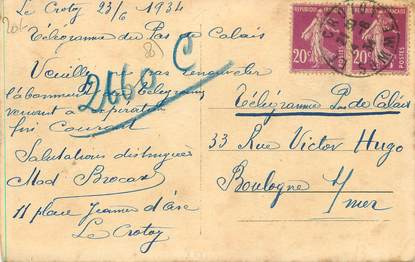 Le Crotoy 23/6 1934
Télégramme du Pas de Calais
Veuillez pas renouveler
l'abonnement télégramme
venant à expiration
fin Courant
Salutations distinguées
Mad Brocard
11 place Jeanne d'Arc
Le Crotoy
2660 C
20c
20c
Télégramme Pas de Calais
33 Rue Victor Hugo
Boulogne
s/mer